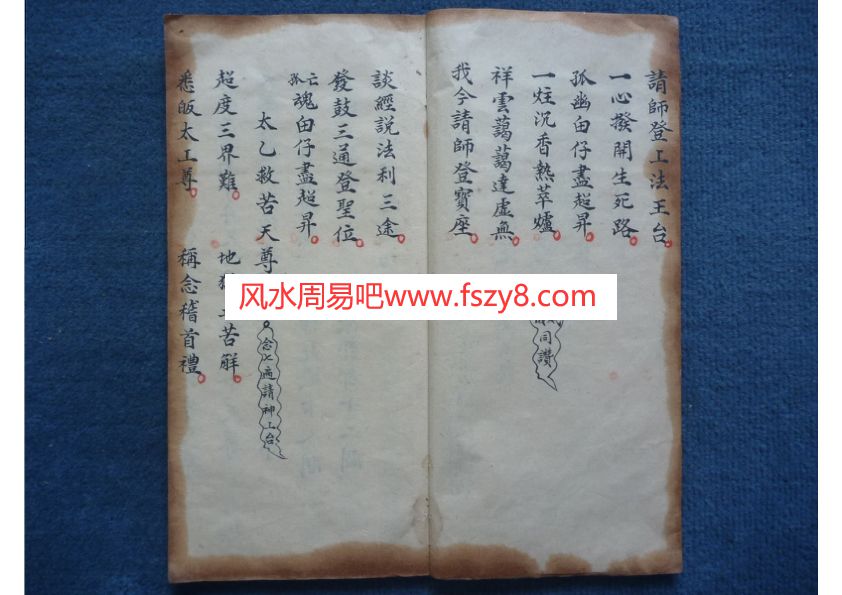 請師登上法王台
一心撥開生死路
孤幽甶仔盡超昇
一炷沉香熱萃爐
同讚
祥雲藹藹達虛無
我今請師登寶座
談經說法利三途
發鼓三通登聖位
亡孤魂甶仔盡超昇
太乙救苦天尊
念七遍請神上台
超度三界難 地 苦解
悉皈太上尊 稱念稽首禮
风水周易吧www.fszy8.com